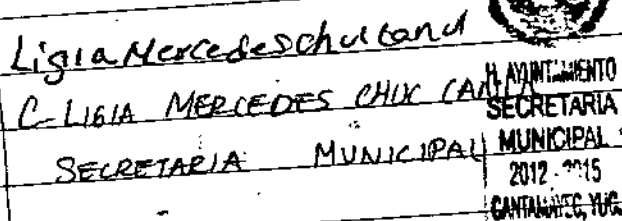 Ligia Mercedes Chuc Canul
C LIGIA MERCEDES CHUC CANUL
SECRETARIA MUNICIPAL
H. AYUNTAMIENTO
SECRETARIA
MUNICIPAL
2012 - 2015
CANTAMAYEC, YUC.